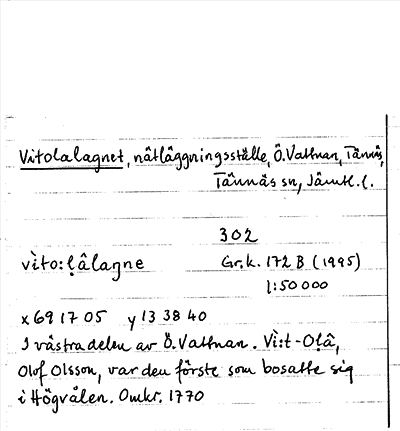 Vitolalagnet, nätläggningsställe, Ö. Valtnan, Tännäs,
Tännäs sn, Jämtl. l.
302
vìto:ḷâlagne Gr.k. 172 B (1995)
1:50 000
x 69 17 05 y 13 38 40
I västra delen av Ö. Valtnan. Vì:t-Oḷâ,
Olof Olsson, var den förste som bosatte sig
i Högvålen. Omkr. 1770